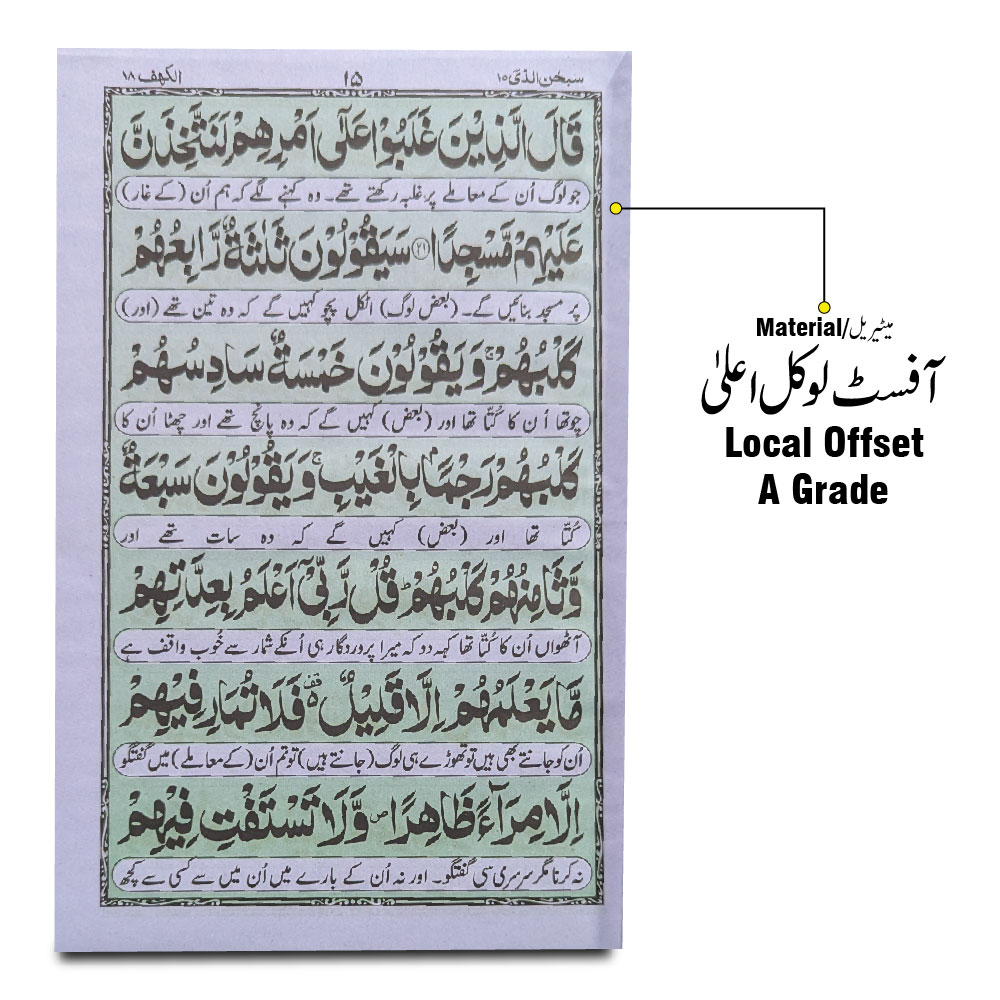 سبحٰن الذی ۱۵
۱۵
الکهف ۱۸
قَالَ الَّذِیْنَ غَلَبُوْا عَلٰۤی اَمْرِهِمْ لَنَتَّخِذَنَّ
جو لوگ اُن کے معاملے پر غلبہ رکھتے تھے۔ وہ کہنے لگے کہ ہم اُن (کے غار)
عَلَیْهِمْ مَّسْجِدًا ﴿۲۱﴾ سَیَقُوْلُوْنَ ثَلٰثَةٌ رَّابِعُهُمْ
پر مسجد بنائیں گے۔ (بعض لوگ) اٹکل پچو کہیں گے کہ وہ تین تھے (اور)
كَلْبُهُمْ ۚ وَ یَقُوْلُوْنَ خَمْسَةٌ سَادِسُهُمْ
چوتھا اُن کا کُتّا تھا اور (بعض) کہیں گے کہ وہ پانچ تھے اور چھٹا اُن کا
كَلْبُهُمْ رَجْمًۢا بِالْغَیْبِ ۚ وَ یَقُوْلُوْنَ سَبْعَةٌ
کُتّا تھا اور (بعض) کہیں گے کہ وہ سات تھے اور
وَّ ثَامِنُهُمْ كَلْبُهُمْ ؕ قُلْ رَّبِّیْۤ اَعْلَمُ بِعِدَّتِهِمْ
آٹھواں اُن کا کُتّا تھا کہہ دو کہ میرا پروردگار ہی اُنکے شمار سے خُوب واقف ہے
مَّا یَعْلَمُهُمْ اِلَّا قَلِیْلٌ ۫ قف ۵ فَلَا تُمَارِ فِیْهِمْ
اُن کو جانتے بھی ہیں تو تھوڑے ہی لوگ (جانتے ہیں) تو تم اُن (کے معاملے) میں گفتگو
اِلَّا مِرَآءً ظَاهِرًا ۪ وَّ لَا تَسْتَفْتِ فِیْهِمْ
نہ کرنا مگر سرسری سی گفتگو۔ اور نہ اُن کے بارے میں اُن میں سے کسی سے کچھ
Material/میٹیریل
آفسٹ لوکل اعلیٰ
Local Offset
A Grade